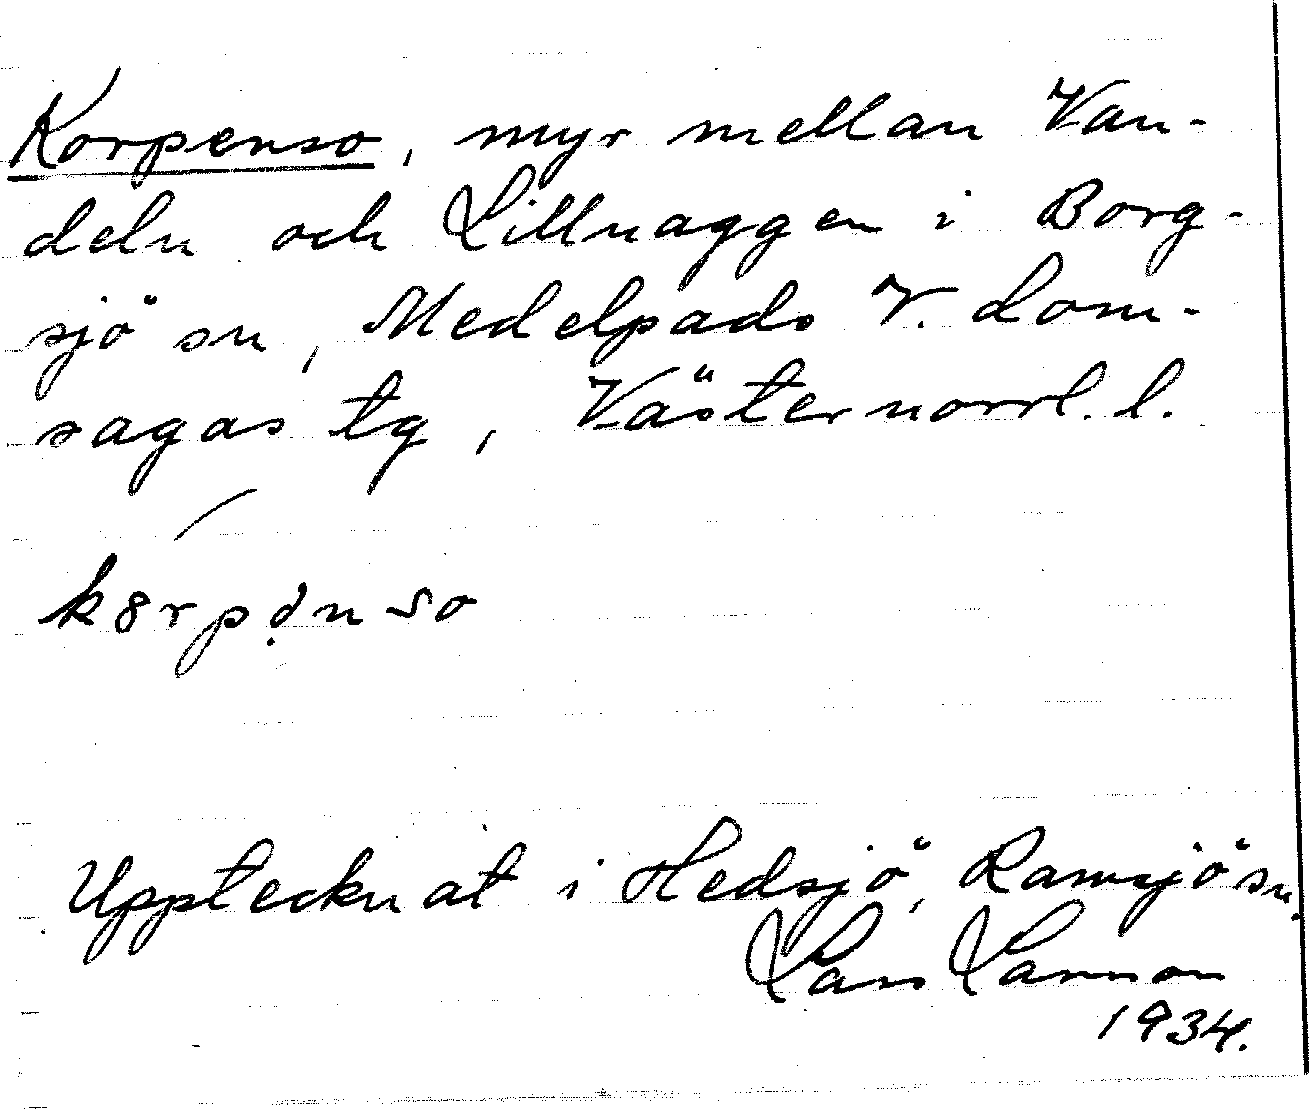 Korpenso, myr mellan Van-
deln och Lillnaggen i Borg-
sjö sn, Medelpads V. dom-
sagas tg, Västernorrl. l.
kȣrpə̣nso
Upptecknat i Hedsjö, Ramsjö sn.
Lars Larsson
1934.